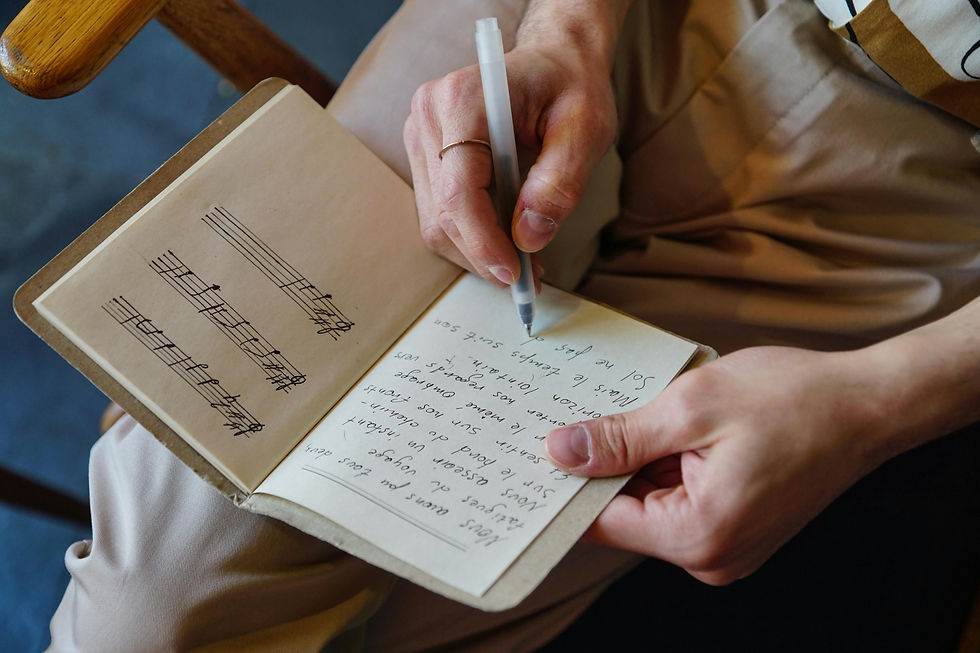 Nous aions pu tous deux
fatigues du voyage
Nous asseoir un instant
sur le bord du chemin-
sentir sur nos fronts
le même ombrage
nos regards vers
lointain.
Mais le temps suit son
ne pas